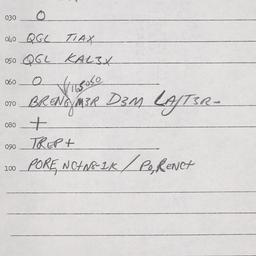 030 O
040 QGL TIAX
050 QGL KAL3X
060 O
070 M3R D3M LAJT3R-
080 +
090 TREP+
100 PORE, NC+NS-1K / PO, RENC+